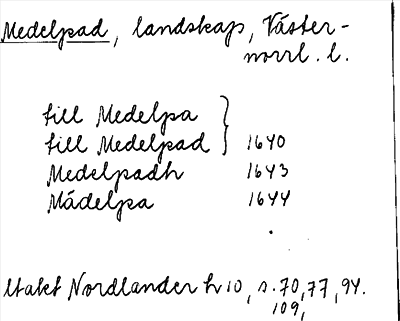 Medelpad, landskap, Väster-
norrl. l.
till Medelpa
till Medelpad } 1640
Medelpadh 1643
Mädelpa 1644
Utakt Nordlander h 10, s. 70, 77, 94.
109,